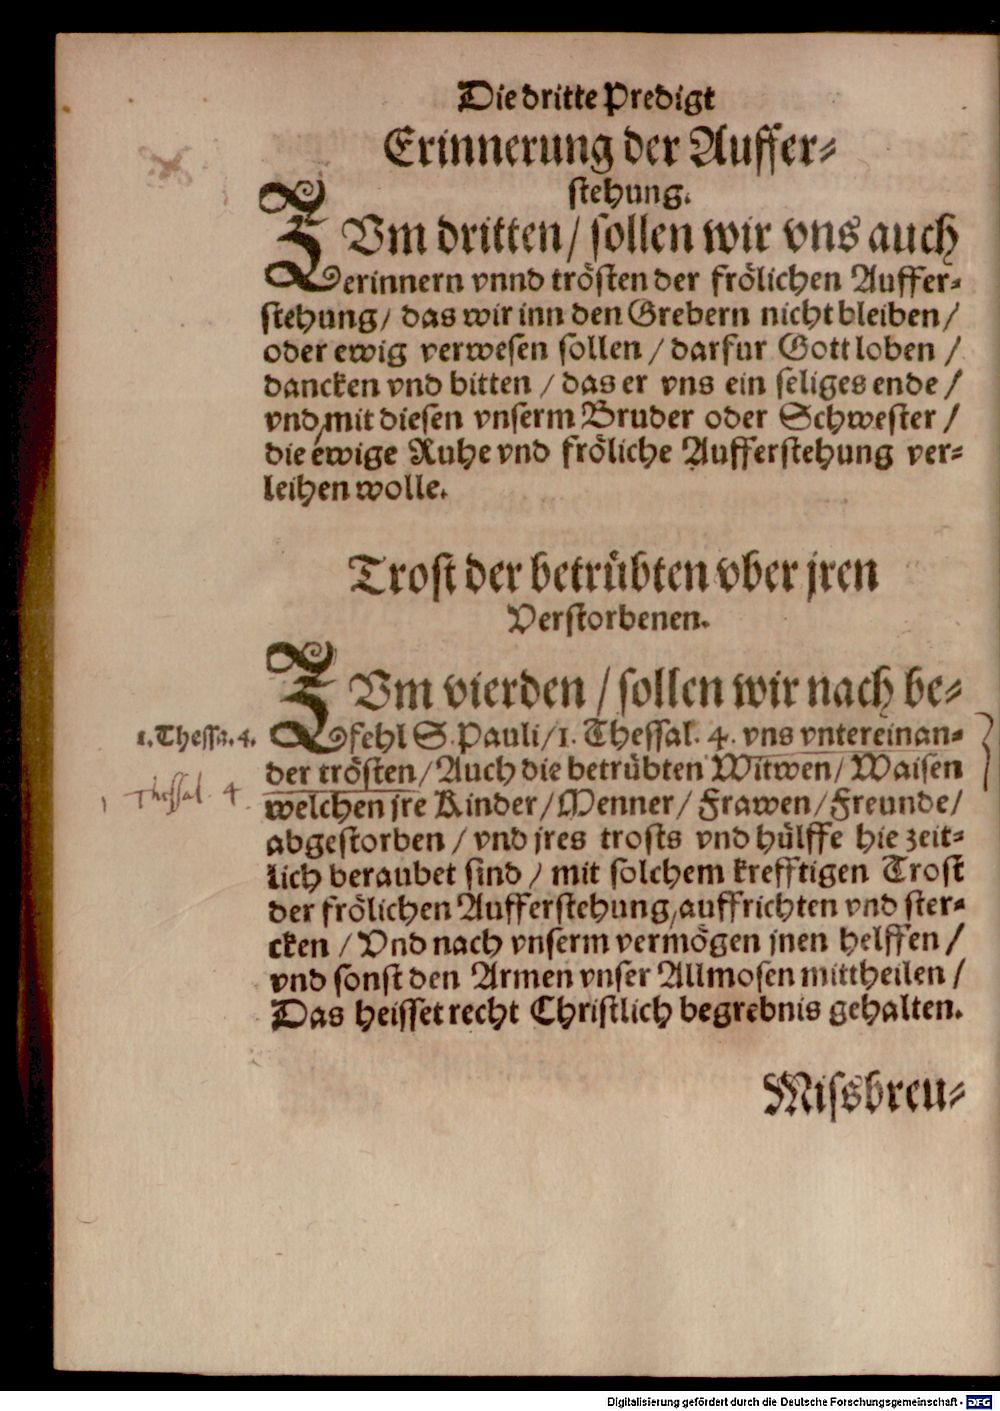 Die dritte Predigt
Erinnerung der Auffer⸗
ſtehung.
ZVm dritten / ſollen wir vns auch
erinnern vnnd tröſten der frölichen Auffer⸗
ſtehung / das wir inn den Grebern nicht bleiben /
oder ewig verweſen ſollen / darfur Gott loben /
dancken vnd bitten / das er vns ein ſeliges ende /
vnd mit dieſen vnſerm Bruder oder Schweſter /
die ewige Ruhe vnd fröliche Aufferſtehung ver⸗
leihen wolle.
Troſt der betrübten vber jren
Verſtorbenen.
ZVm vierden / ſollen wir nach be⸗
1. Theſſ. 4. fehl S. Pauli / 1. Theſſal. 4. vns vntereinan⸗
der tröſten / Auch die betrübten Witwen / Waiſen
1 Theſſal. 4. welchen jre Kinder / Menner / Frawen / Freunde /
abgeſtorben / vnd jres troſts vnd hülffe hie zeit⸗
lich beraubet ſind / mit ſolchem krefftigen Troſt
der frölichen Aufferſtehung, auffrichten vnd ſter⸗
cken / Vnd nach vnſerm vermögen jnen helffen /
vnd ſonſt den Armen vnſer Allmoſen mittheilen /
Das heiſſet recht Chriſtlich begrebnis gehalten.
Miſsbreu⸗
Digitalisierung gefördert durch die Deutsche Forschungsgemeinschaft - DFG